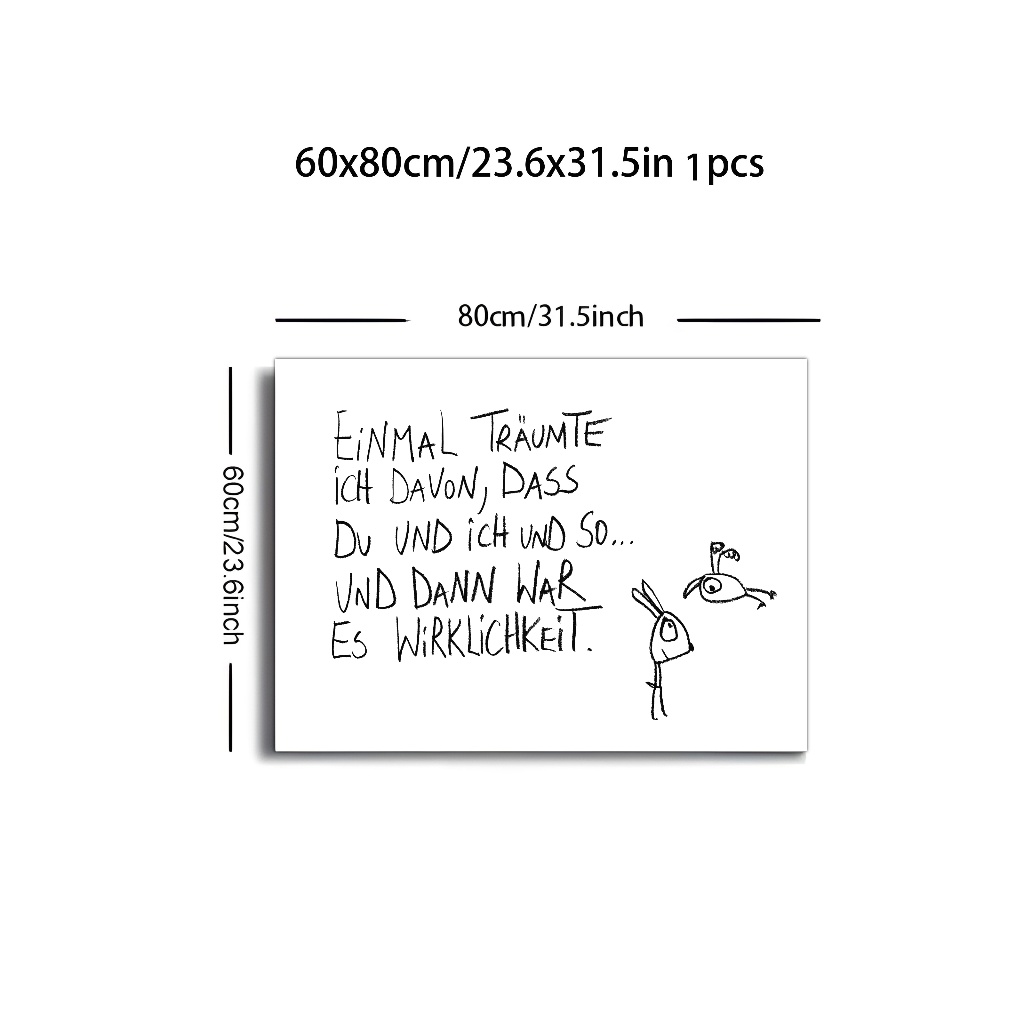 60x80cm/23.6x31.5in 1pcs
80cm/31.5inch
60cm/23.6inch
EiNMAL TRÄUMTE
iCH DAVON, DASS
DU UND iCH UND SO...
UND DANN WAR
ES WiRKLiCHKEiT.